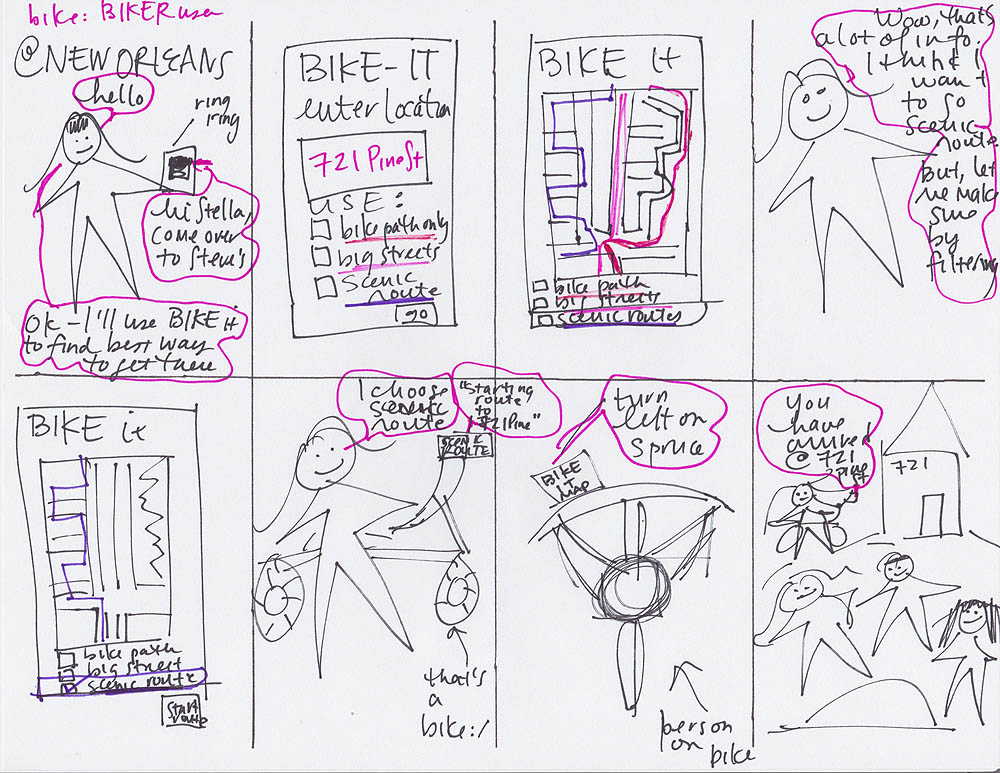 bike: BIKER user
@NEW ORLEANS
hello
ring
ring
hi Stella,
come over
to Steve's
OK - I'll use BIKE it
to find best way
to get there
BIKE-IT
enter location
721 Pine St
USE:
bike path only
big streets
scenic
route
go
BIKE it
bike path
big streets
scenic routes
Wow, that's
a lot of info.
I think I
want
to go
scenic
route
But, let
me make
sure
by
filtering
BIKE it
bike path
big street
scenic route
start
route
I choose
scenic
route
"Starting
route
to
721 Pine"
SCENIC
ROUTE
that's
a
bike:/
turn
left on
spruce
BIKE
IT
MAP
person
on bike
you
have
arrived
@ 721
Pine
St
721